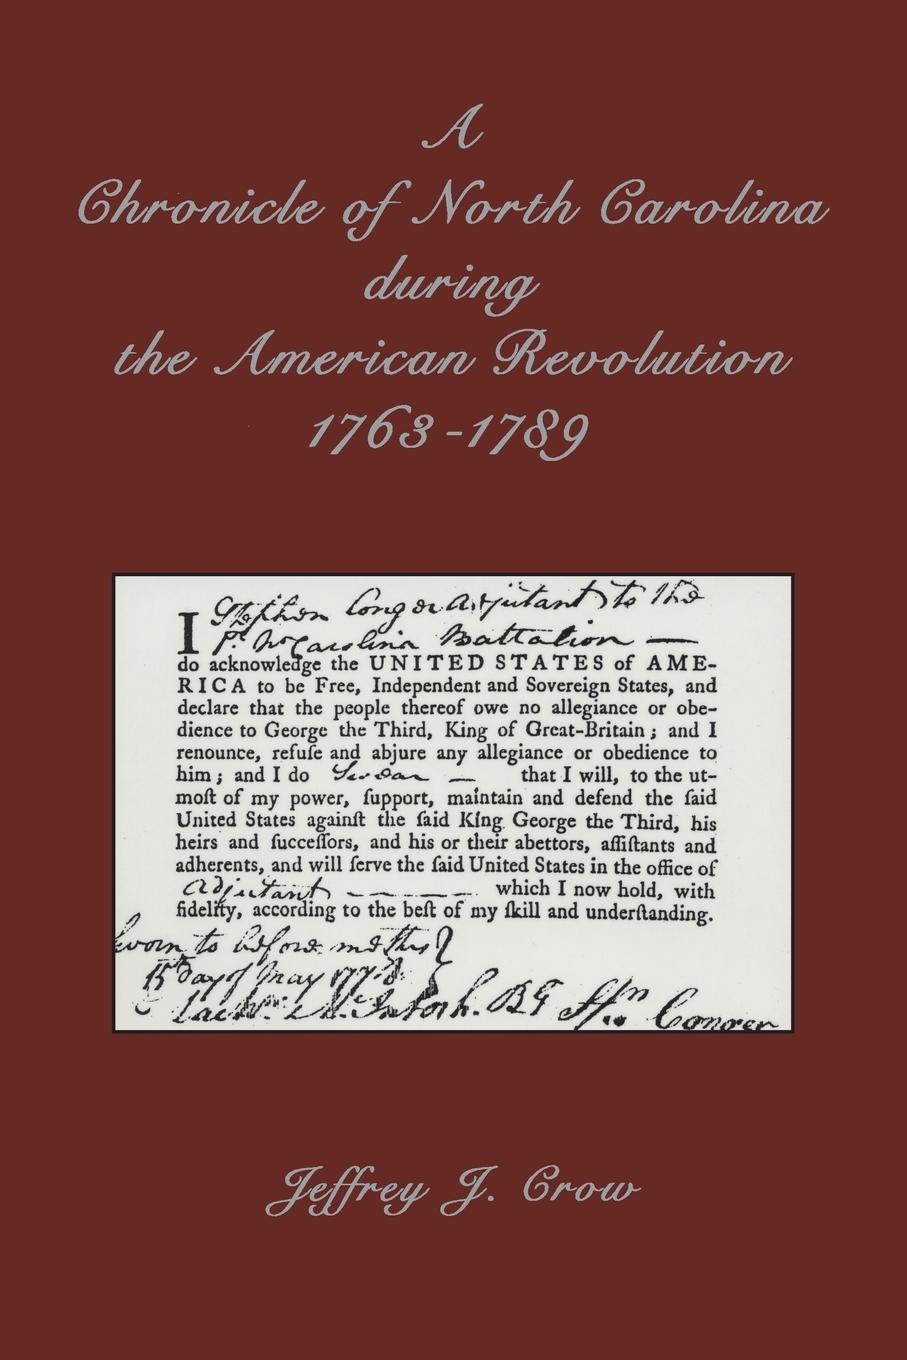 A
Chronicle of North Carolina
during
the American Revolution
1763-1789
I Stephen Conger Adjutant to the
Pt. No Carolina Battalion —
do acknowledge the UNITED STATES of AME-
RICA to be Free, Independent and Sovereign States, and
declare that the people thereof owe no allegiance or obe-
dience to George the Third, King of Great-Britain; and I
renounce, refuſe and abjure any allegiance or obedience to
him; and I do Swear — that I will, to the ut-
moſt of my power, ſupport, maintain and defend the ſaid
United States againſt the ſaid King George the Third, his
heirs and ſucceſſors, and his or their abettors, aſſiſtants and
adherents, and will ſerve the ſaid United States in the office of
Adjutant — — — — which I now hold, with
fidelity, according to the beſt of my ſkill and underſtanding.
Sworn to before me this
15th Day of May 1778
Lachn. McIntosh. BG Stn Conger
Jeffrey J. Crow